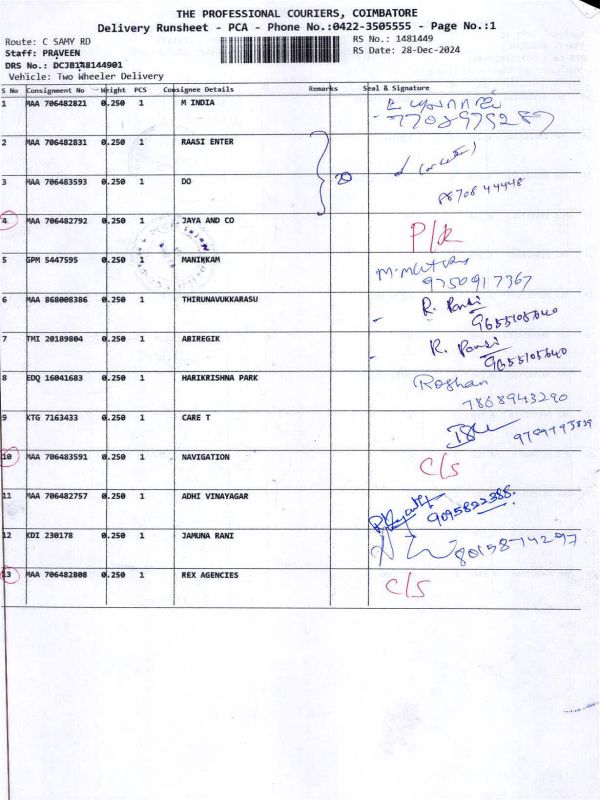 THE PROFESSIONAL COURIERS, COIMBATORE
Delivery Runsheet - PCA - Phone No.:0422-3505555 - Page No.:1
Route: C SAMY RD
RS No.: 1481449
Staff: PRAVEEN
RS Date: 28-Dec-2024
DRS No.: DCJB148144901
Vehicle: Two Wheeler Delivery
S No Consignment No Weight PCS Consignee Details Remarks Seal & Signature
1 MAA 706482821 0.250 1 M INDIA
2 MAA 706482831 0.250 1 RAASI ENTER
3 MAA 706483593 0.250 1 DO
4 MAA 706482792 0.250 1 JAYA AND CO
5 GPM 5447595 0.250 1 MANIKKAM
9750917367
6 MAA 868008386 0.250 1 THIRUNAVUKKARASU R. Pandi
9655105640
7 TMI 20189804 0.250 1 ABIREGIK R. Pandi
9655105640
8 EDQ 16041683 0.250 1 HARIKRISHNA PARK Roshan
7868943290
9 KTG 7163433 0.250 1 CARE T
10 MAA 706483591 0.250 1 NAVIGATION C/S
11 MAA 706482757 0.250 1 ADHI VINAYAGAR 9095822388
12 KDI 230178 0.250 1 JAMUNA RANI
13 MAA 706482808 0.250 1 REX AGENCIES C/S